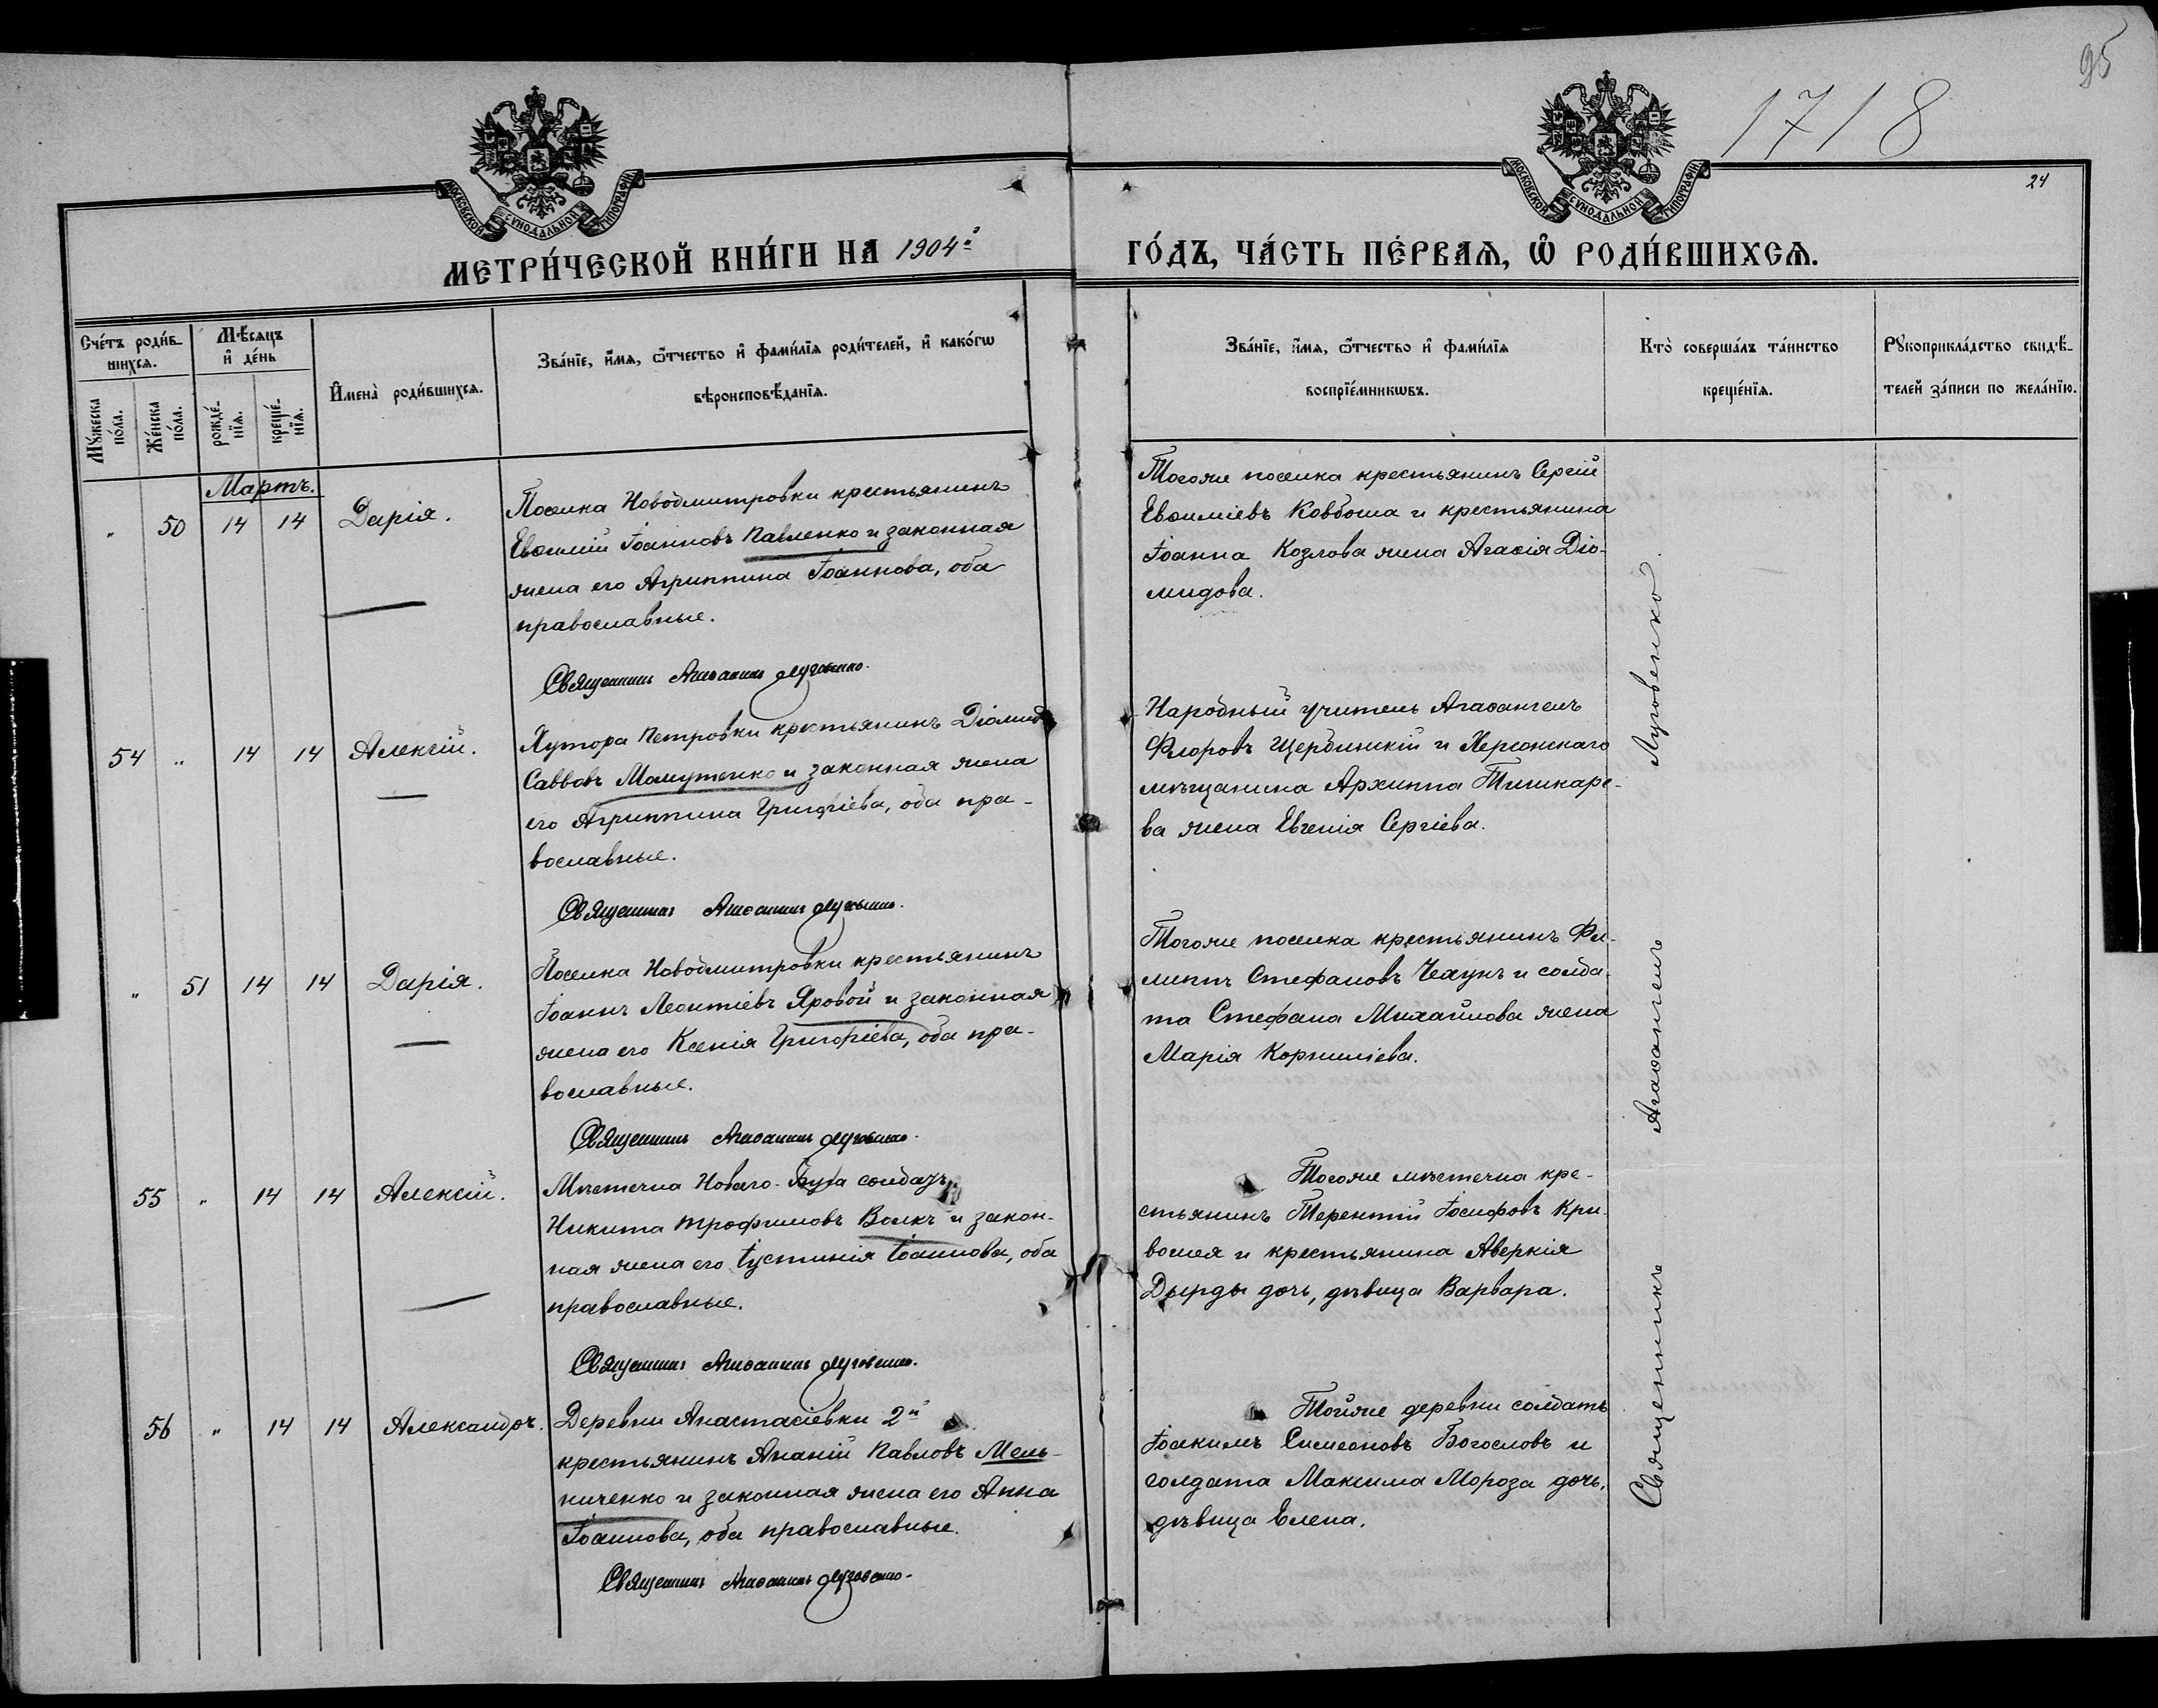 95
1718
24
МОСКОВСКОЙ СѴНОДАЛЬНОЙ ТИПОГРАФІИ
МОСКОВСКОЙ СѴНОДАЛЬНОЙ ТИПОГРАФІИ
МЕТРИ́ЧЕСКОЙ КНИ́ГИ НА 1904й
ГО́ДЪ, ЧА́СТЬ ПЕ́РВАѦ, Ѡ҆ РОДИ́ВШИХСѦ.
Сче́тъ роди́в-
шихсѧ.
Мꙋ́жеска по́ла.
Же́нска по́ла.
Мѣ́сѧцъ
и҆ де́нь
рожде́-
нїѧ.
креще́-
нїѧ.
И҆мена̀ роди́вшихсѧ.
Зва́нїе, и҆́мѧ, ѻ҆́тчество и҆ фами́лїѧ роди́телей, и҆ како́гѡ
вѣроисповѣ́данїѧ.
Зва́нїе, и҆́мѧ, ѻ҆́тчество и҆ фами́лїѧ
воспрїе́мникѡвъ.
Кто̀ соверша́лъ та́инство
креще́нїѧ.
Рꙋкоприкла́дство свидѣ́-
телей за́писи по жела́нїю.
Мартъ.
" 50 14 14 Дарія.
Поселка Новодмитровки крестьянинъ
Евѳимій Іоанновъ Павленко и законная
жена его Агриппина Іоаннова, оба
православные.
Священникъ Агаѳангелъ Луговенко.
Тогоже поселка крестьянинъ Сергій
Евѳиміевъ Ковбоша и крестьянина
Іоанна Козлова жена Агаѳія Діо-
мидова.
54 " 14 14 Алексій.
Хутора Петровки крестьянинъ Діомидъ
Саввовъ Мамутенко и законная жена
его Агриппина Григоріева, оба пра-
вославные.
Священникъ Агаѳангелъ Луговенко.
Народный учитель Агаѳангелъ
Флоровъ Щербинскій и Херсонскаго
мѣщанина Архиппа Тишкаре-
ва жена Евгенія Сергіева.
" 51 14 14 Дарія.
Поселка Новодмитровки крестьянинъ
Іоаннъ Леонтіевъ Яровой и законная
жена его Ксенія Григоріева, оба пра-
вославные.
Священникъ Агаѳангелъ Луговенко.
Тогоже поселка крестьянинъ Фи-
липпъ Стефановъ Чехунъ и солда-
та Стефана Михайлова жена
Марія Корниліева.
55 " 14 14 Алексій.
Мѣстечка Новаго-Буга солдатъ
Никита Трофимовъ Волкъ и закон-
ная жена его Іустинія Іоаннова, оба
православные.
Священникъ Агаѳангелъ Луговенко.
Тогоже мѣстечка кре-
стьянинъ Терентій Іосифовъ Кри-
вошея и крестьянина Аверкія
Дырды дочь, дѣвица Варвара.
56 " 14 14 Александръ.
Деревни Анастасіевки 2й
крестьянинъ Ананій Павловъ Мель-
ниченко и законная жена его Анна
Іоаннова, оба православные.
Священникъ Агаѳангелъ Луговенко.
Тойже деревни солдатъ
Іоакимъ Симеоновъ Богословъ и
солдата Максима Мороза дочь,
дѣвица Елена.
Священникъ Агаѳангелъ Луговенко.